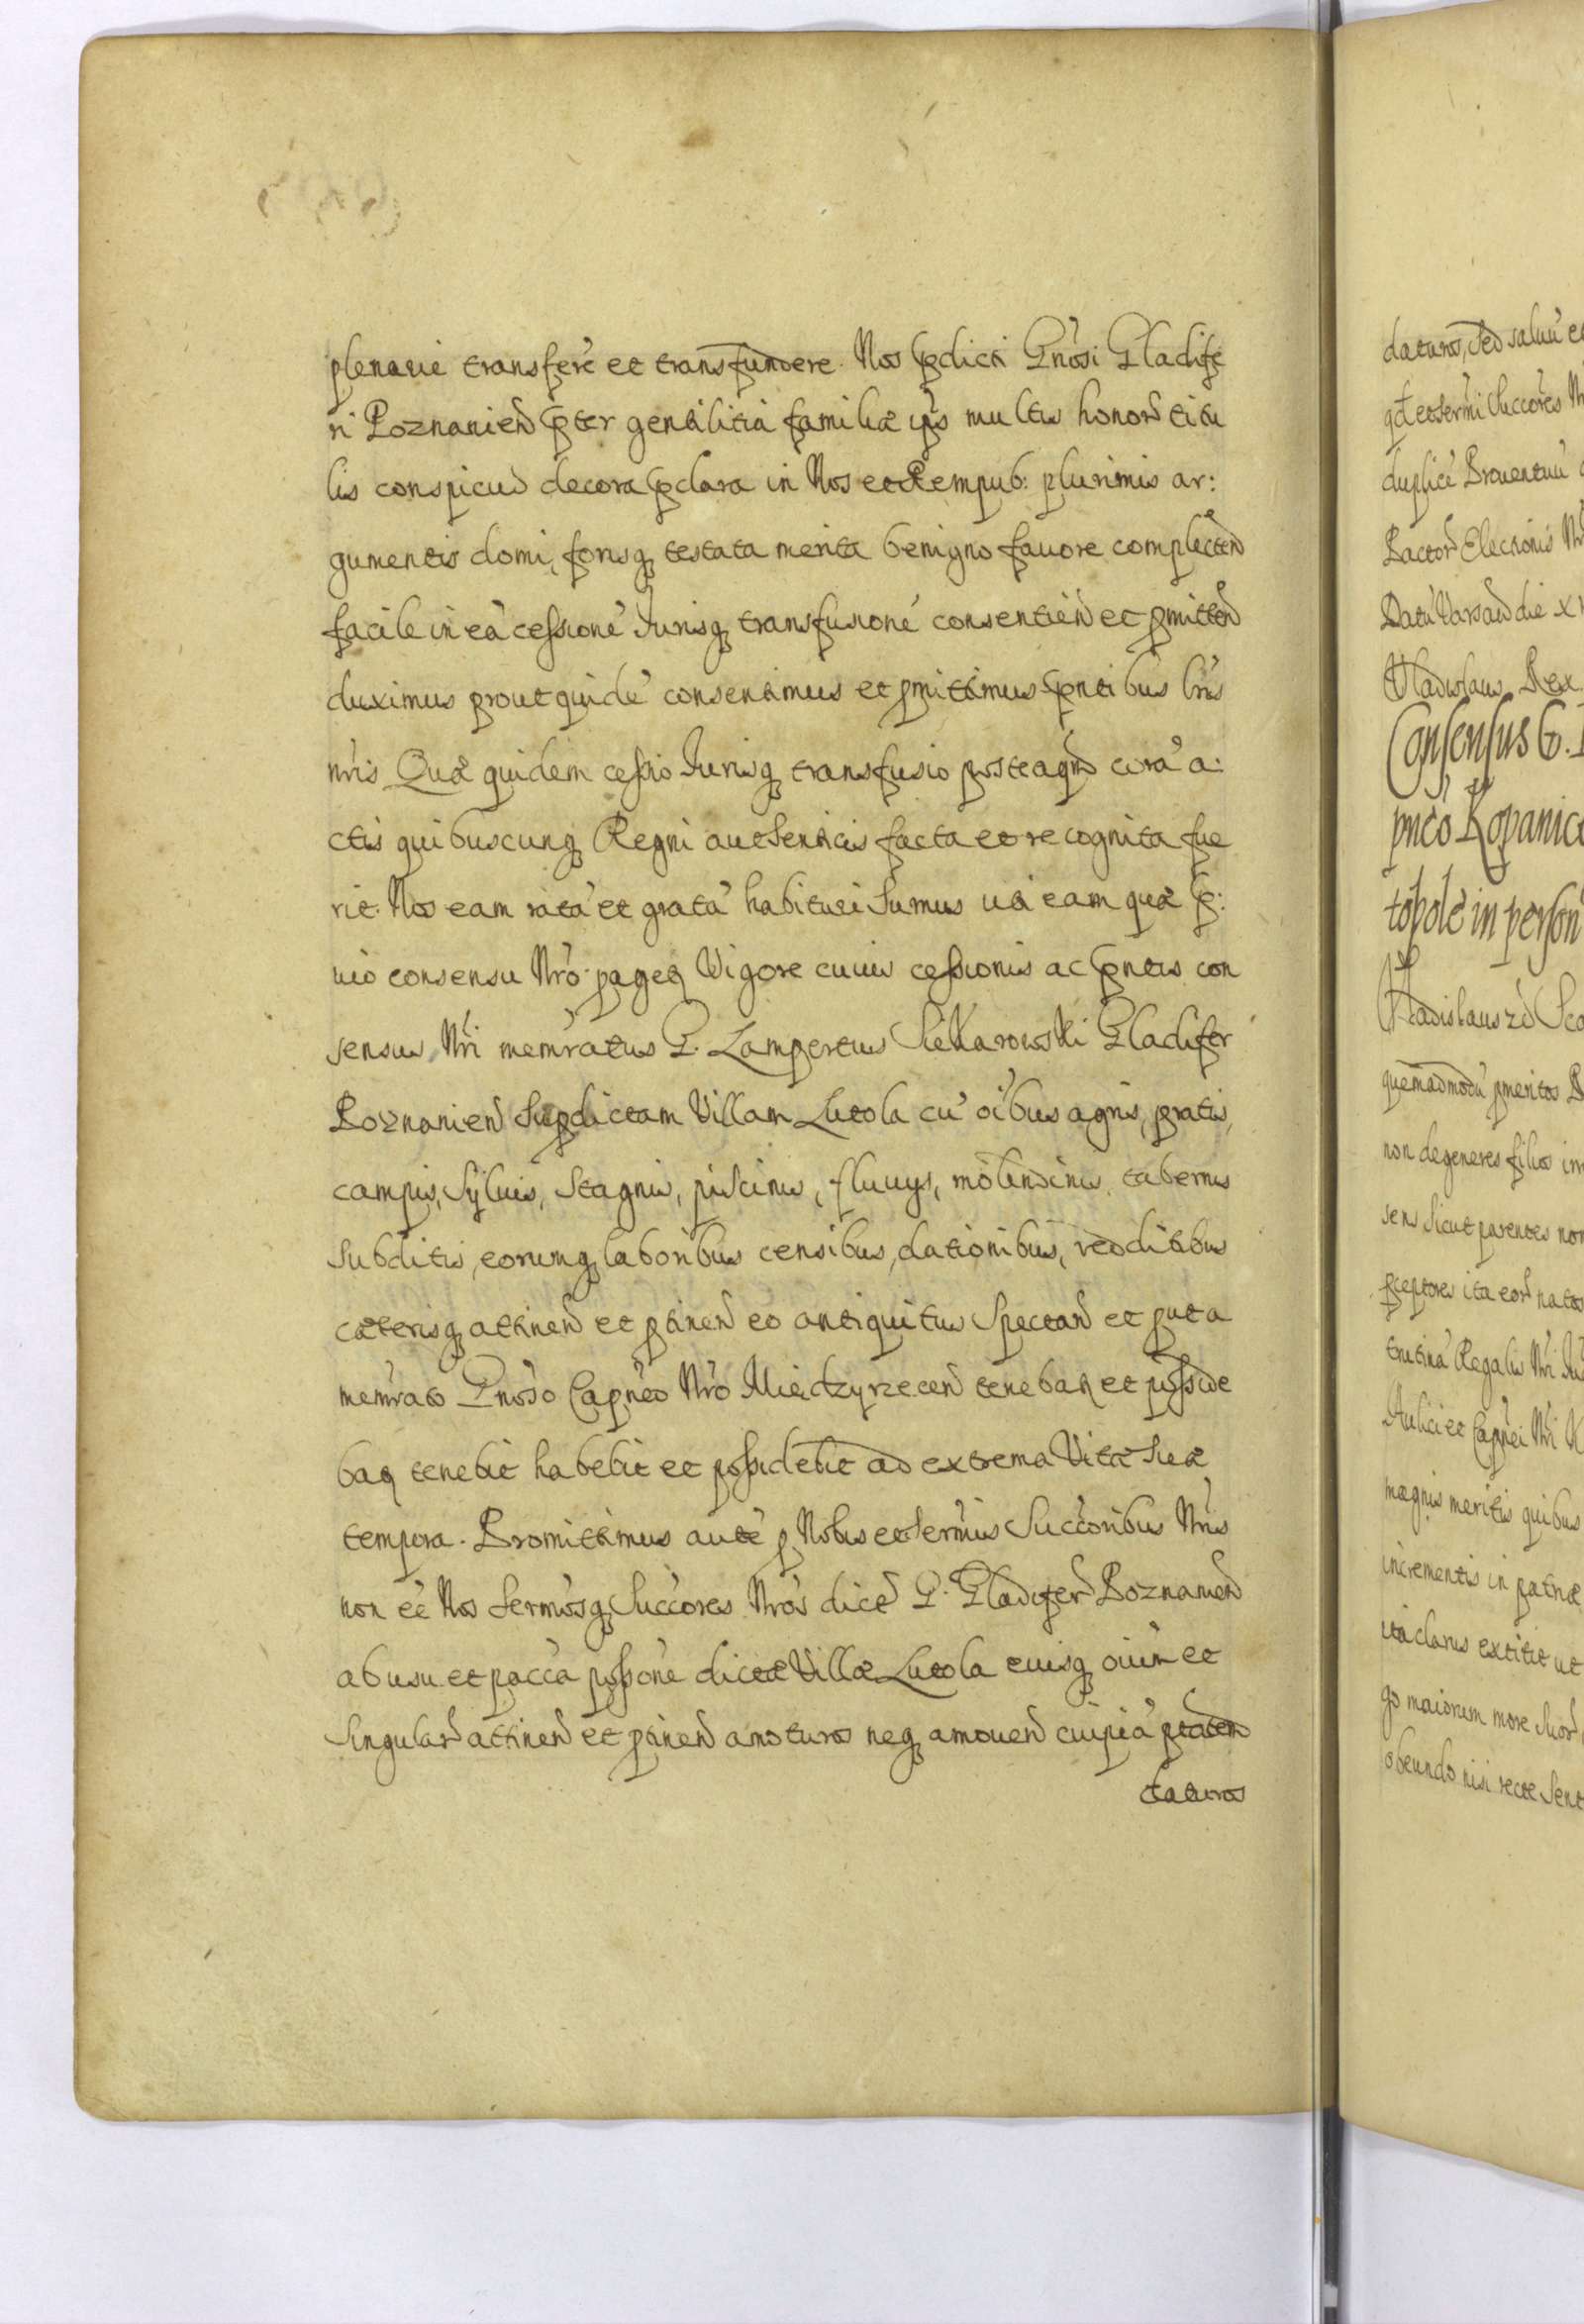 plenarie transferre et transfundere. Nos pdicti Gnosi Gladife
ri Poznanien pter gentilitia familiæ ipś multis honorum titu
lis conspicuæ decora pclara in Nos et Rempub: plurimis ar:
gumentis domi, forisq testata merita benigno fauore complecten
facile in eã cessionẽ Jurisq transfusionẽ consentien et pmitten
duximus prout quidẽ consentimus et pmittimus pntibus lris
nris Quæ quidem cessio Jurisq transfusio posteaqm corã a:
ctis quibuscunq Regni authenticis facta et recognita fue
rit. Nos eam ratã et gratã habituri sumus uti eam quæ p:
uio consensu Nro pageq Vigore cuius cessionis ac pntis con
sensus Nri memratus G. Lampertus Siekarowski Gladifer
Poznanien supdictam Villam Lutola cũ oibus agris, pratis,
campis, syluis, stagnis, piscinis, fluuys, molendinis tabernis
subditis, eorumq laboribus censibus, dationibus, redditibus
cæterisq attinen et ptinen eo antiquitus spectan et put a
memrato Gnoso Capneo Nro Miedzyrzecen tenebaq et posside
baq tenebit habebit et possidebit ad extrema Vitæ suæ
tempora. Promittimus autẽ p Nobis et Sermis Succoribus Nris
non eẽ Nos Sermosq Succores Nros dictũ G. Gladiferũ Poznanien
ab usu et pacca possone dictæ Villæ Lutola eiusq oium et
singularũ attinen et ptinen amoturos neq amouen cuipiã ptatem
daturos
daturos, sed saluũ et
qd et sermi Succores
duplicẽ Prouentuũ
Pactorũ Electionis
Datũ Varsaw die
Vladislaus Rex
Consensus G.
pnco Kopanic
topole in person
Vladislaus
quemadmodũ pmeritos
non degeneres filios
sens sicut parentes non
pceptores ita eorũ natos
trutinã Regalis Nri
Aulici et Capnei Nri
magnis meritis quibus
incrementis in patriæ
ita clarus extitit ut
go maiorum more suorũ
obeundo nisi recte